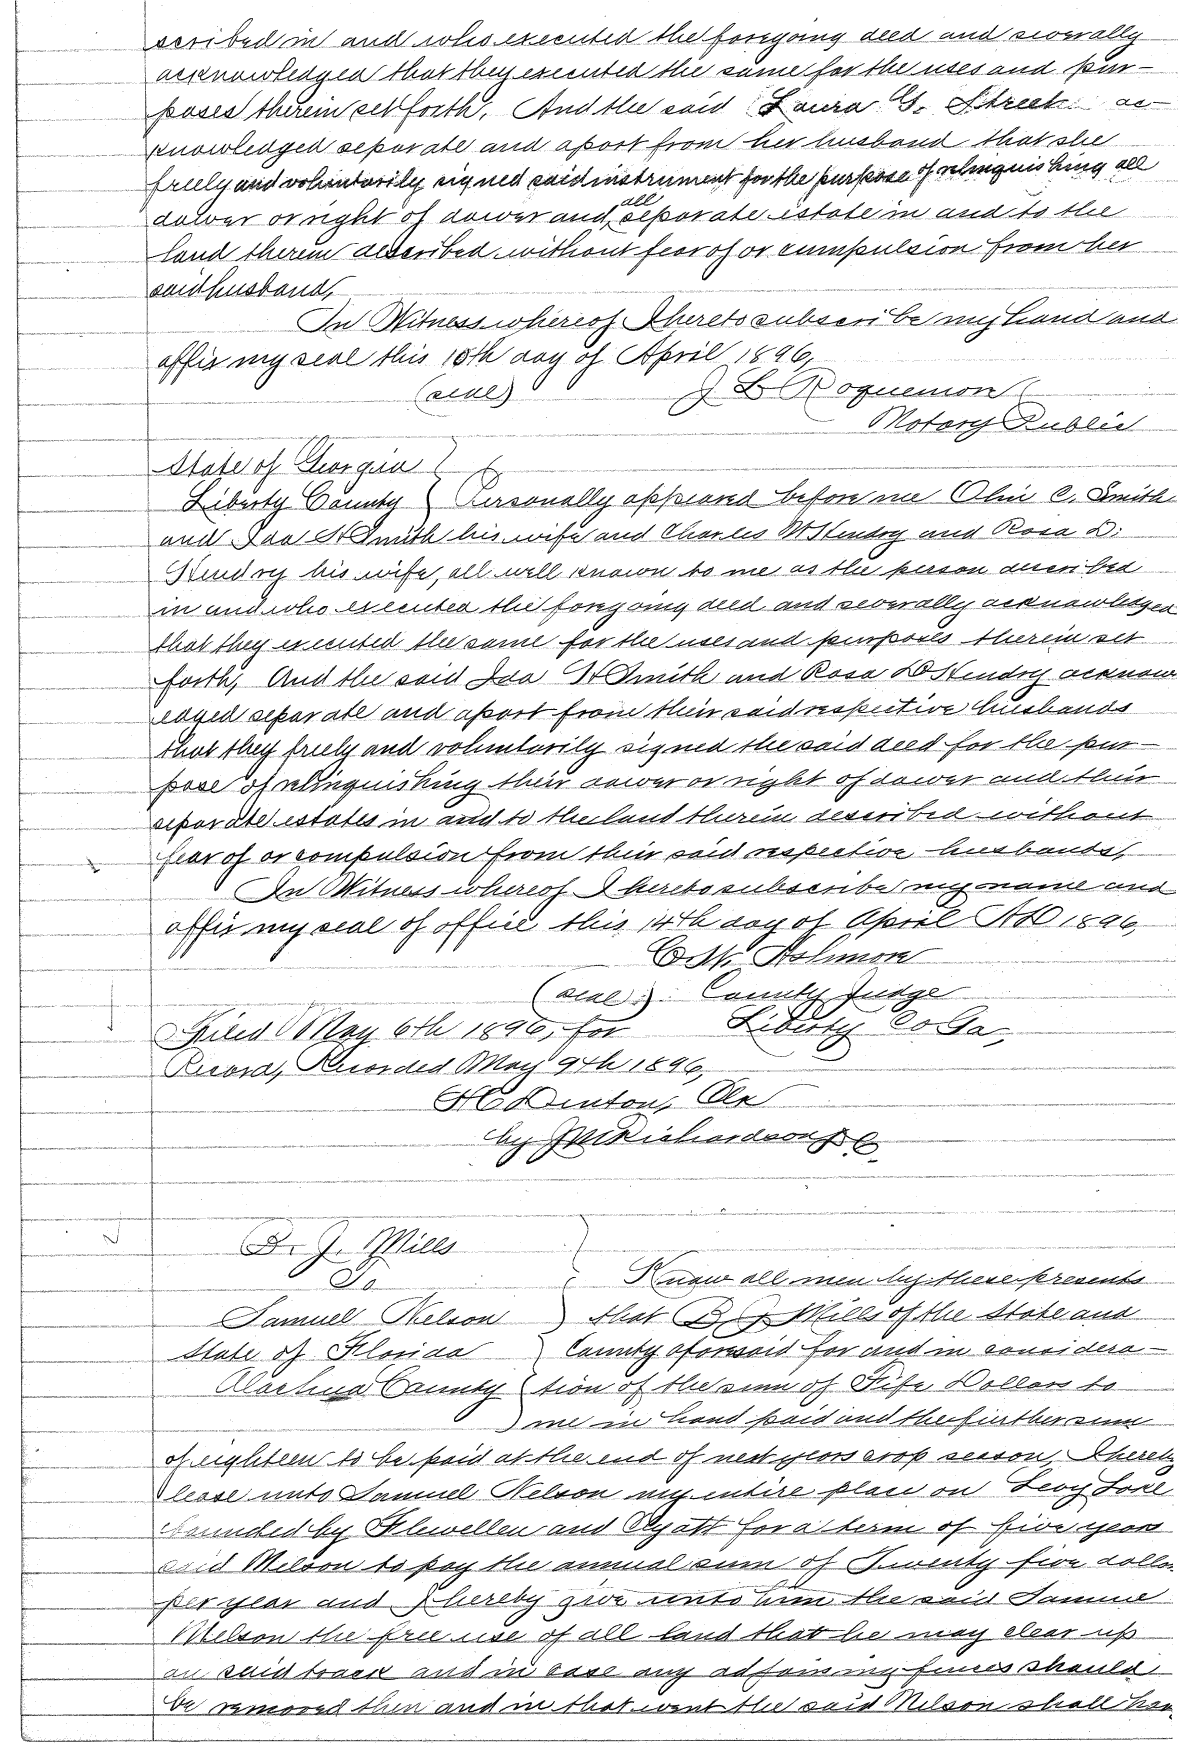 scribed in and who executed the foregoing deed and severally
acknowledged that they executed the same for the uses and pur-
poses therein set forth. And the said Laura G. Streek ac-
knowledged separate and apart from her husband that she
freely and voluntarily signed said instrument for the purpose of relinquishing all
dower or right of dower and all separate estate in and to the
land therein described without fear of or compulsion from her
said husband,
In Witness whereof I hereto subscribe my hand and
affix my seal this 10th day of April 1896,
(seal) J L Roquemore
Notary Public
State of Georgia
Liberty County Personally appeared before me Olin C. Smith
and Ida H Smith his wife and Charles W Hendry and Rosa D.
Hendry his wife, all well known to me as the person described
in and who executed the foregoing deed and severally acknowledged
that they executed the same for the uses and purposes therein set
forth, And the said Ida H Smith and Rosa D Hendry acknow
edged separate and apart from their said respective husbands
that they freely and voluntarily signed the said deed for the pur-
pose of relinquishing their dower or right of dower and their
separate estates in and to the land therein described without
fear of or compulsion from their said respective husbands,
In Witness whereof I hereto subscribe my name and
affix my seal of office this 14th day of April AD 1896,
Ashmore
(seal) County Judge
Filed May 6th 1896, for Liberty Co Ga,
Record, Recorded May 9th 1896,
H C Denton, Clk
by J M Richardson D C
B. J. Mills
To Know all men by these presents
Samuel Nelson that B J Mills of the State and
State of Florida County aforesaid for and in considera-
Alachua County tion of the sum of Fife Dollars to
me in hand paid and the further sum
of eighteen to be paid at the end of next years crop season, I hereby
lease unto Samuel Nelson my entire place on Levy Lake
bounded by Flewellen and Wyatt for a term of five years
said Nelson to pay the annual sum of Twenty five dollars
per year and I hereby give unto him the said Samuel
Nelson the free use of all land that he may clear up
on said track and in case any adjoining fences should
be removed then and in that event the said Nelson shall hav